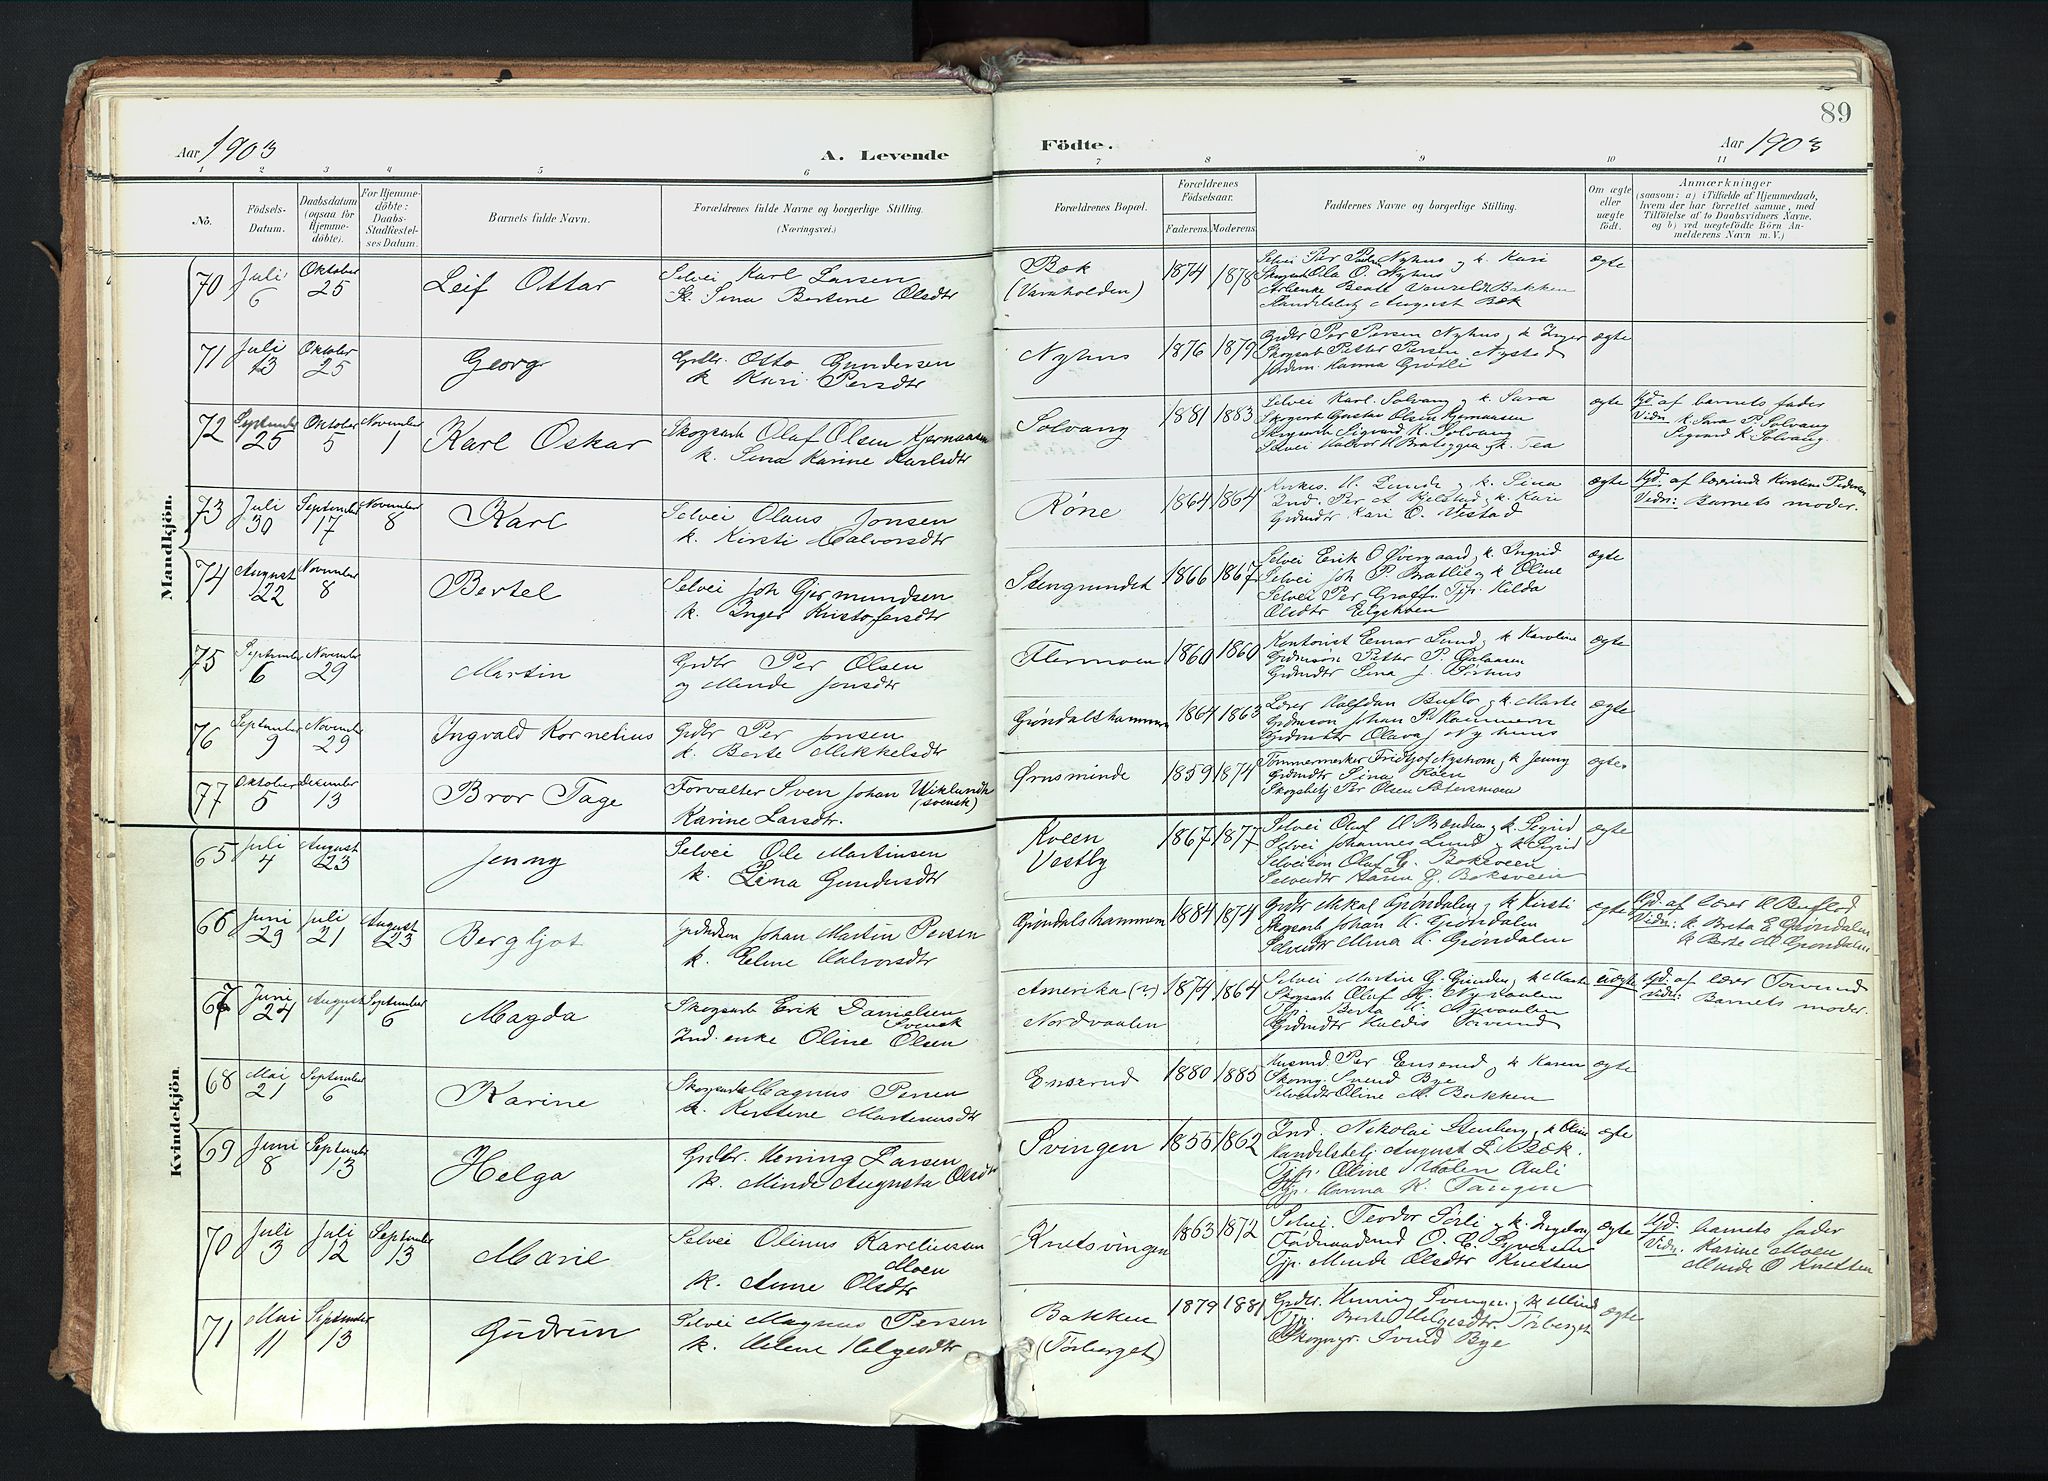 89
Aar 1903
A. Levende
Födte.
Aar 1903
1 2 3 4 5 6 7 8 9 10 11
No.
Födsels-Datum.
Daabsdatum (ogsaa for Hjemmedöbte).
For Hjemmedöbte: Daabs-Stadfæstelses Datum.
Barnets fulde Navn.
Forældrenes fulde Navne og borgerlige Stilling.
(Næringsvei.)
Forældrenes Bopæl.
Forældrenes Födselsaar.
Faderens. Moderens.
Faddernes Navne og borgerlige Stilling.
Om ægte eller uægte födt.
Anmærkninger
(saasom: a) i Tilfælde af Hjemmedaab,
hvem der har forrettet samme, med
Tilföielse af to Daabsvidners Navne.
og b) ved uægtefödte Börn An-
melderens Navn m. V.)
Mandkjön.
70 Juli 6 Oktober 25 Leif Ottar
Selvei Karl Larsen
k. Sina Bertine Olsdtr
Bæk
(Varnholden)
1874 1878
Selvei Per Nyhus og k. Kari
Skogsarb Ola O. Nyhus
Bakken
Handelsbetj August Bæk
ægte
71 Juli 13 Oktober 25 Georg
Grdbr. Otto Gundersen
k Kari Persdtr
Nyhus
1876 1879
Grdbr Per Persen Nyhus, k Inger
Skogsarb Petter Persen Nystad
Hanna Grøtli
ægte
72 September 25 Oktober 5 November 1 Karl Oskar
Skogsarb Olaf Olsen Kjernaasen
k. Sina Karine Karlsdtr
Solvang
1881 1883
Selvei Karl Solvang og k. Sara
Skogarb Gustav Olsen Kjernaasen
Skogsarb Sigvard K. Solvang
Selvei Halvor H Bratvggen k. Tea
ægte
Hjd af barnets fader
Vidn k. Sara P. Solvang
Sigvard K. Solvang
73 Juli 30 September 17 November 8 Karl
Selvei Olaus Jonsen
k. Kirsti Halvorsdtr
Røne
1864 1864
H. Lunde og k. Sina
Ind. Per A Kjelstad, k. Kari
Grdmdtr Kari O. Vestad
ægte
Hjd. af lærerinde Kirstine Pedersen
Vidn: Barnets moder.
74 August 22 November 8 Bertel
Selvei Joh Gjermundsen
k. Inger Kristofersdtr
Stengrundet
1866 1867
Selvei Erik O Øvergaard, k. Ingrid
Selvei Joh P. Brattli og k Oline
Selvei Per Graff. Tjp. Hilda
Olsdtr Elgshoen
ægte
75 September 6 November 29 Martin
Grdbr Per Olsen
og Minde Jonsdtr
Flermoen
1860 1860
Kontorist Einar Lund, k Karoline
Grdmsøn Petter P. Galaasen
Grdmdtr Lina J. Børhus
ægte
76 September 9 November 29 Ingvald Kornelius
Grdbr Per Jonsen
k. Berte Mikkelsdtr
Grøndalshammen
1864 1863
Lærer Halfdan Buflo og k Marte
Grdmsøn Johan P. Hammern
Grdmdtr Olava J Nyhuus
ægte
77 Oktober 5 December 13 Bror Tage
Forvalter Sven Johan Wiklundh
(svensk)
Karine Larsdtr.
Ørnsminde
1859 1874
Tømmermerker Fridtjof Nystrøm, k Jenny
Grdmdtr Sina Røen
Skogsbetj Per Olsen Sætersmoen
ægte
Kvindekjön.
65 Juli 4 August 23 Jenny
Selvei Ole Martinsen
k. Lina Gundersdtr
Kveen
Vestby
1867 1877
Selvei Oluf H Brænden, k. Sigrid
Selvei Johannes Lund, k Sigrid
Selveisøn Olaf E. Bokeveen
Selveidtr Karen G. Boksveen
ægte
66 Juni 29 Juli 21 August 23 Bergljot
Grdmdsøn Johan Martin Persen
k. Eline Halvorsdtr
Grøndalshammen
1884 1874
Grdbr Mikal Grøndalen, k Kirsti
Skogsarb Johan K. Grøndalen
Selveidtr Mina K. Grøndalen
ægte
Hjd. af lærer H Buflod
Vidn: k. Breta E Grøndalen
k Berte M. Grøndalen
67 Juni 24 August 1 September 6 Magda
Skogsarb Erik Danielsen
Svensk
Ind. enke Oline Olsen
Amerika (?)
Nordvaalen
1874 1864
Selvei Martin G. Grinden, k Marte
Skogsarb Oluf H. Nyvaalen
Tjp. Berta K. Nyvaalen
Grdmdtr Haldis Torvund
uægte
Hjd. af lærer Torvund
Vidn: Barnets moder.
68 Mai 21 September 6 Karine
Skogsarb Magnus Persen
k. Kirstine Martinusdtr
Enserud
1880 1885
Husmd Per Enserud, k Karen
Skomg. Svend Bye
Selveidtr Oline M. Bakken
ægte
69 Juni 8 September 13 Helga
Grdbr. Hening Larsen
k. Minde Augusta Olsdtr
Svingen
1855 1862
Ind. Nikolai Stenberg, k Oline
Handelsbetj August L. Bæk.
Tjp. Oline Vaalen Auli
Tjp. Hanna K. Tangen
ægte
70 Juli 3 Juli 12 September 13 Marie
Selvei Olinus Karelinssen
Moen
k. Anne Olsdtr
Knetsvingen
1863 1872
Selvei. Teodor Sørli og k. Ingeborg
O. C. Syversen
Tjp. Minde Olsdtr Knetten
ægte
Hjd: barnets fader
Vidn: Karine Moen
Minde O Knetten
71 Mai 11 September 13 Gudrun
Selvei Magnus Persen
k. Helene Helgesdtr
Bakken
(Törberget)
1879 1881
Grdbr. Hening Svingen, k Mind
Tjp. Berte Helgesdtr Törberget
Skogsgr. Svend Bye
ægte